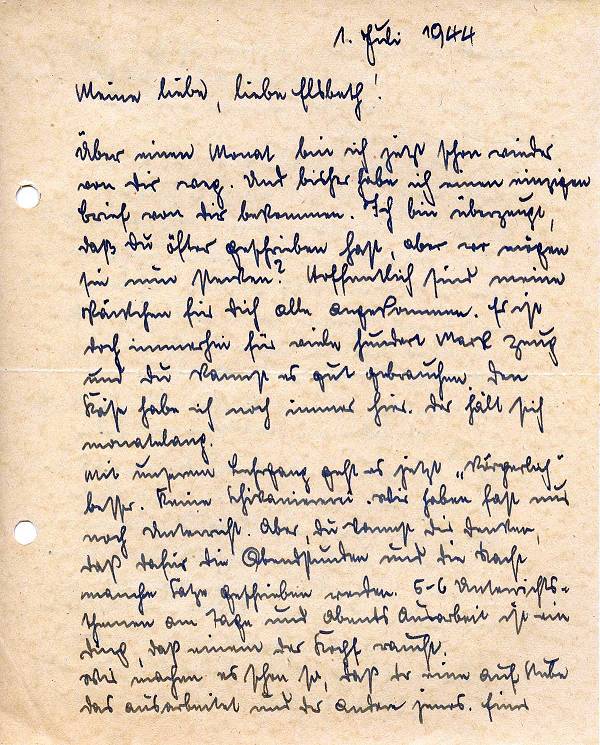 1. Juli 1944
Meine liebe, liebe Elsbeth!
Über einen Monat bin ich jetzt schon wieder
von Dir weg. Und bisher habe ich einen einzigen
Brief von Dir bekommen. Ich bin überzeugt,
daß Du öfter geschrieben hast, aber wo mögen
sie nun stecken? Hoffentlich sind meine
Päckchen für Dich alle angekommen. Es ist
doch immerhin für viele hundert Mark Zeug
und Du kannst es gut gebrauchen. Den
Käse habe ich noch immer hier. Der hält sich
monatelang.
Mit unserem Lehrgang geht es jetzt „körperlich"
besser. Keine Schikaniererei. Wir haben fast nur
noch Unterricht. Aber, Du kannst Dir denken,
daß dafür die Abendstunden und die Nacht
manche Sätze geschrieben werden. 5-6 Unterrichts-
themen am Tage und abends Ausarbeit ist ein
Ding, daß einem der Kopf raucht.
Wir machen es schon so, daß der eine auf Stube
das ausarbeitet und der andere jenes. Einer